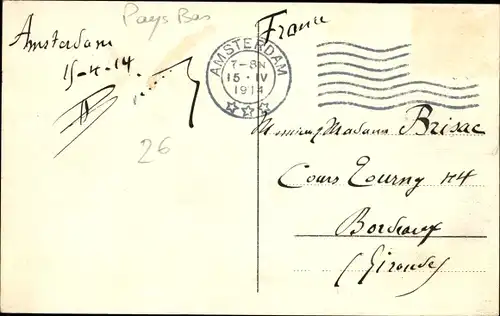 Pays Bas
Amsterdam
15-4-14
26
AMSTERDAM
7-8N
15·IV
1914
France
Monsieur/Madame Brisac
Cours Tourny 174
Bordeaux
(Gironde)